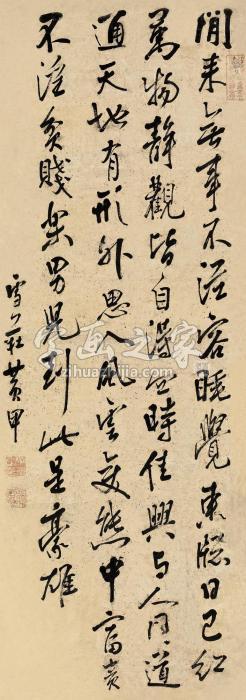 閒来無事不從容睡覺東牕日已紅
萬物静觀皆自得四時佳興与人同道
通天地有形外思入風雲變態中富貴
不淫貧賤樂男兒到此是豪雄
雪黄甲
字画之家
zihuazhijia.com